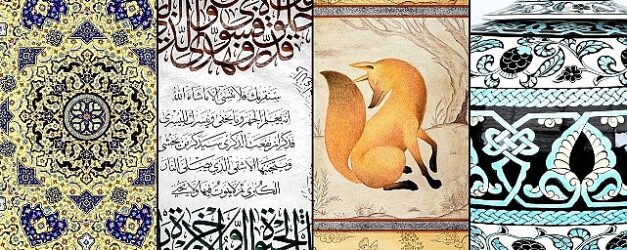 خلق فسوى والذي
قدر فهدى والذي
سنقرئك فلا تنسى إلا ما شاء الله
إنه يعلم الجهر وما يخفى ونيسرك لليسرى
فذكر إن نفعت الذكرى سيذكر من يخشى
ويتجنبها الأشقى الذي يصلى النار
الكبرى ثم لا يموت فيها ولا يحيى